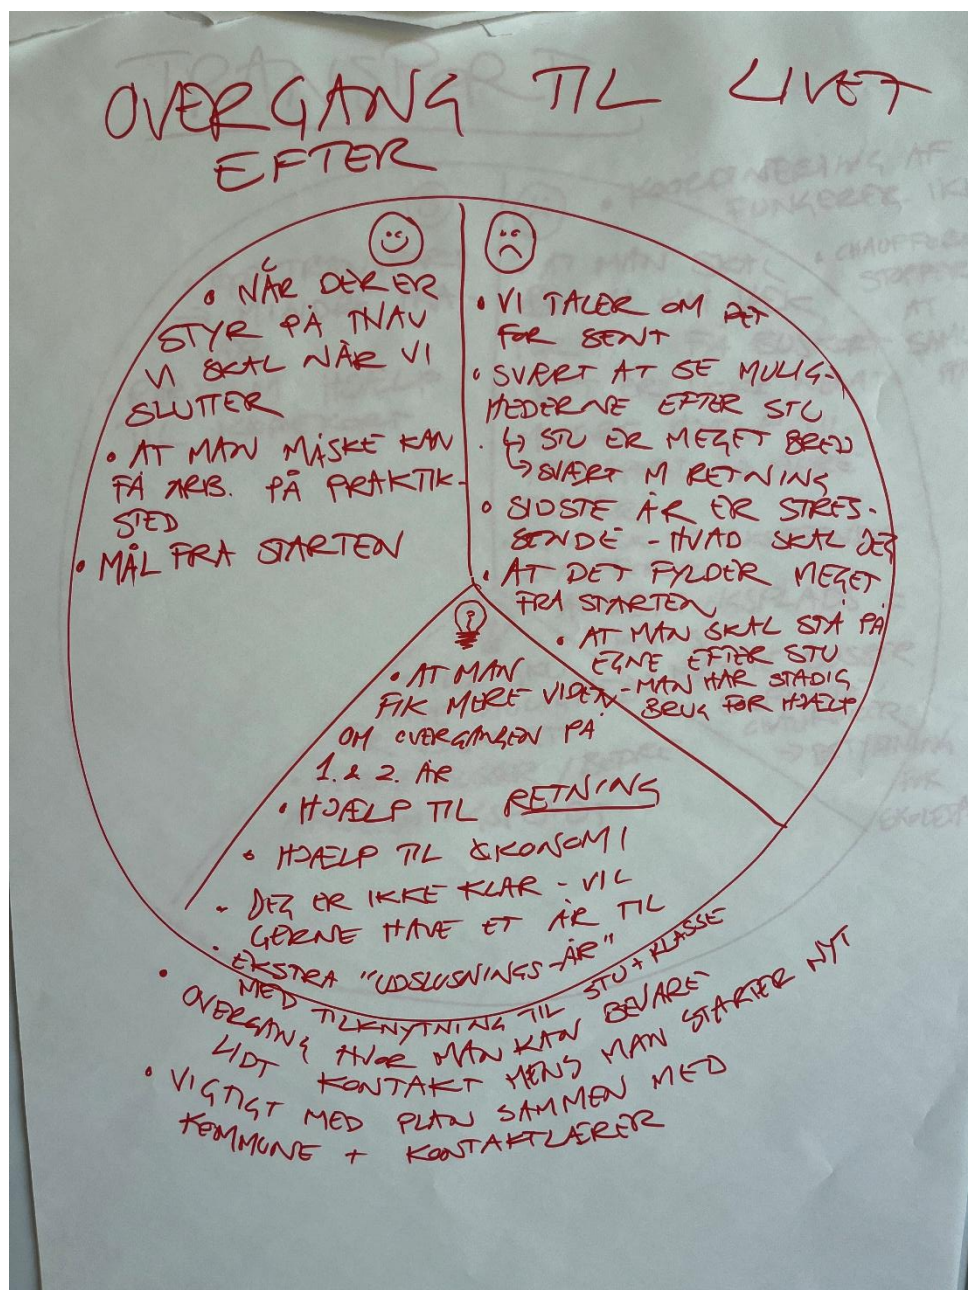 OVERGANG TIL LIVET
EFTER
• NÅR DER ER
STYR PÅ HVAD
VI SKAL NÅR VI
SLUTTER
• AT MAN MÅSKE KAN
FÅ ARB. PÅ PRAKTIK-
STED
• MÅL FRA STARTEN
• VI TALER OM DET
FOR SENT
• SVÆRT AT SE MULIG-
HEDERNE EFTER STU
↳ STU ER MEGET BRED
↳ SVÆRT M RETNING
• SIDSTE ÅR ER STRES-
SENDE - HVAD SKAL JEG
• AT DET FYLDER MEGET
FRA STARTEN
• AT MAN SKAL STÅ PÅ
EGNE EFTER STU
- MAN HAR STADIG
BRUG FOR HJÆLP
• AT MAN
FIK MERE VIDEN
OM OVERGANGEN PÅ
1. & 2. ÅR
• HJÆLP TIL RETNING
• HJÆLP TIL ØKONOMI
• JEG ER IKKE KLAR - VIL
GERNE HAVE ET ÅR TIL
• EKSTRA "UDSLUSNINGS-ÅR"
MED TILKNYTNING TIL STU + KLASSE
• OVERGANG HVOR MAN KAN BEVARE
LIDT KONTAKT MENS MAN STARTER NYT
• VIGTIGT MED PLAN SAMMEN MED
KOMMUNE + KONTAKTLÆRER